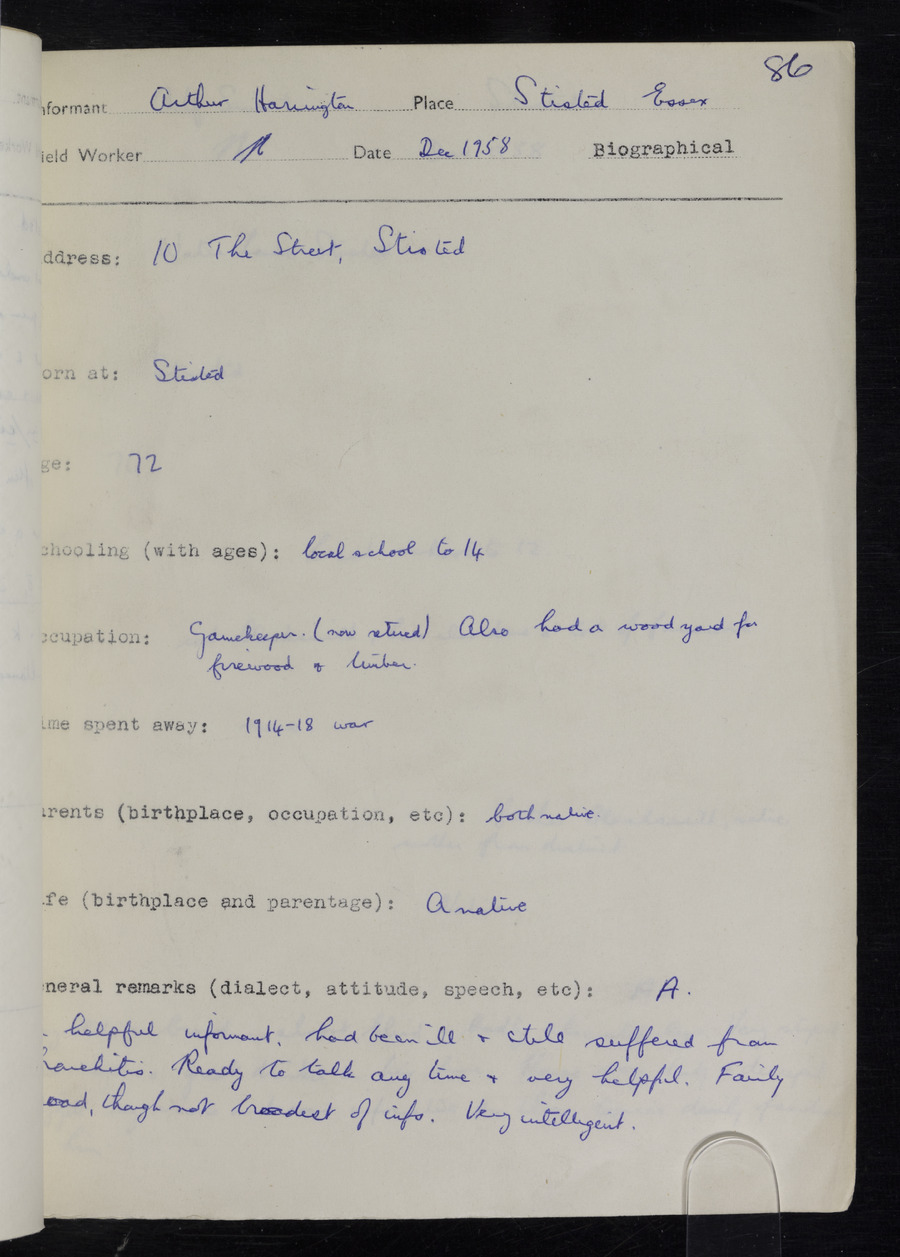 86
nformant Arthur Harrington Place Stisted Essex
ield Worker Date Dec 1958 Biographical
ddress: 10 The Street, Stisted
orn at: Stisted
ge: 72
chooling (with ages): local school to 14
ccupation: Gamekeeper. (now retired) Also had a wood yard for
firewood & timber.
ime spent away: 1914-18 war
rents (birthplace, occupation, etc): both native.
fe (birthplace and parentage): A native
neral remarks (dialect, attitude, speech, etc): A.
helpful informant. had been ill & still suffered from
ronchitis. Ready to talk any time & very helpful. Fairly
oad, though not broadest of info. Very intelligent.